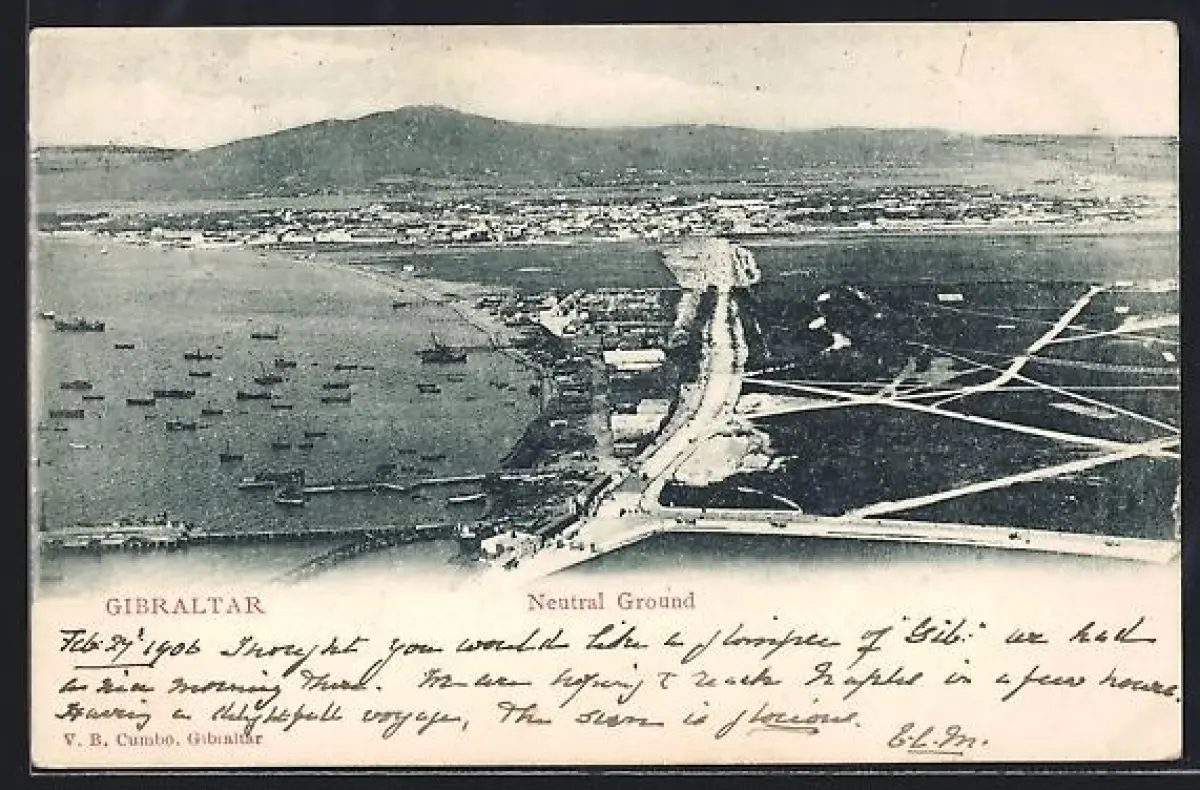 GIBRALTAR
Neutral Ground
Feb. 27 1906 Thought you would like a glimpse of "Gib." we had
a nice morning there. We are hoping to reach Naples in a few hours.
Having a delightfull voyage, The sun is glorious.
E.L.M.
V. B. Cumbo, Gibraltar